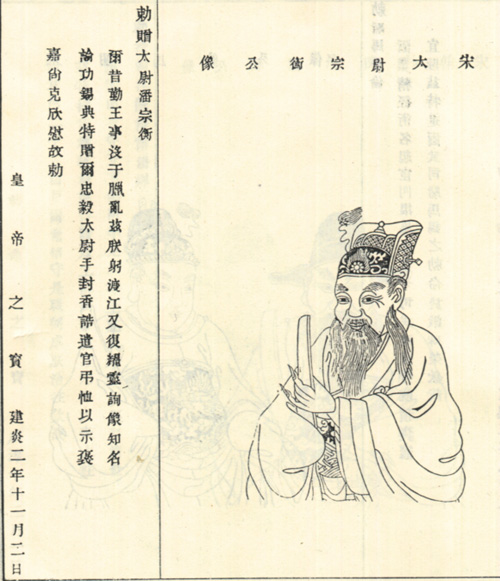 宋太尉宗衡公像
勅贈太尉潘宗衡
爾昔勤王事沒于臘亂茲朕躬渡江又復顯靈詢像知名
論功錫典特贈爾忠毅太尉手封香誥遣官弔恤以示褒
嘉尙克欣慰故勅
皇帝之寳
建炎二年十一月二日